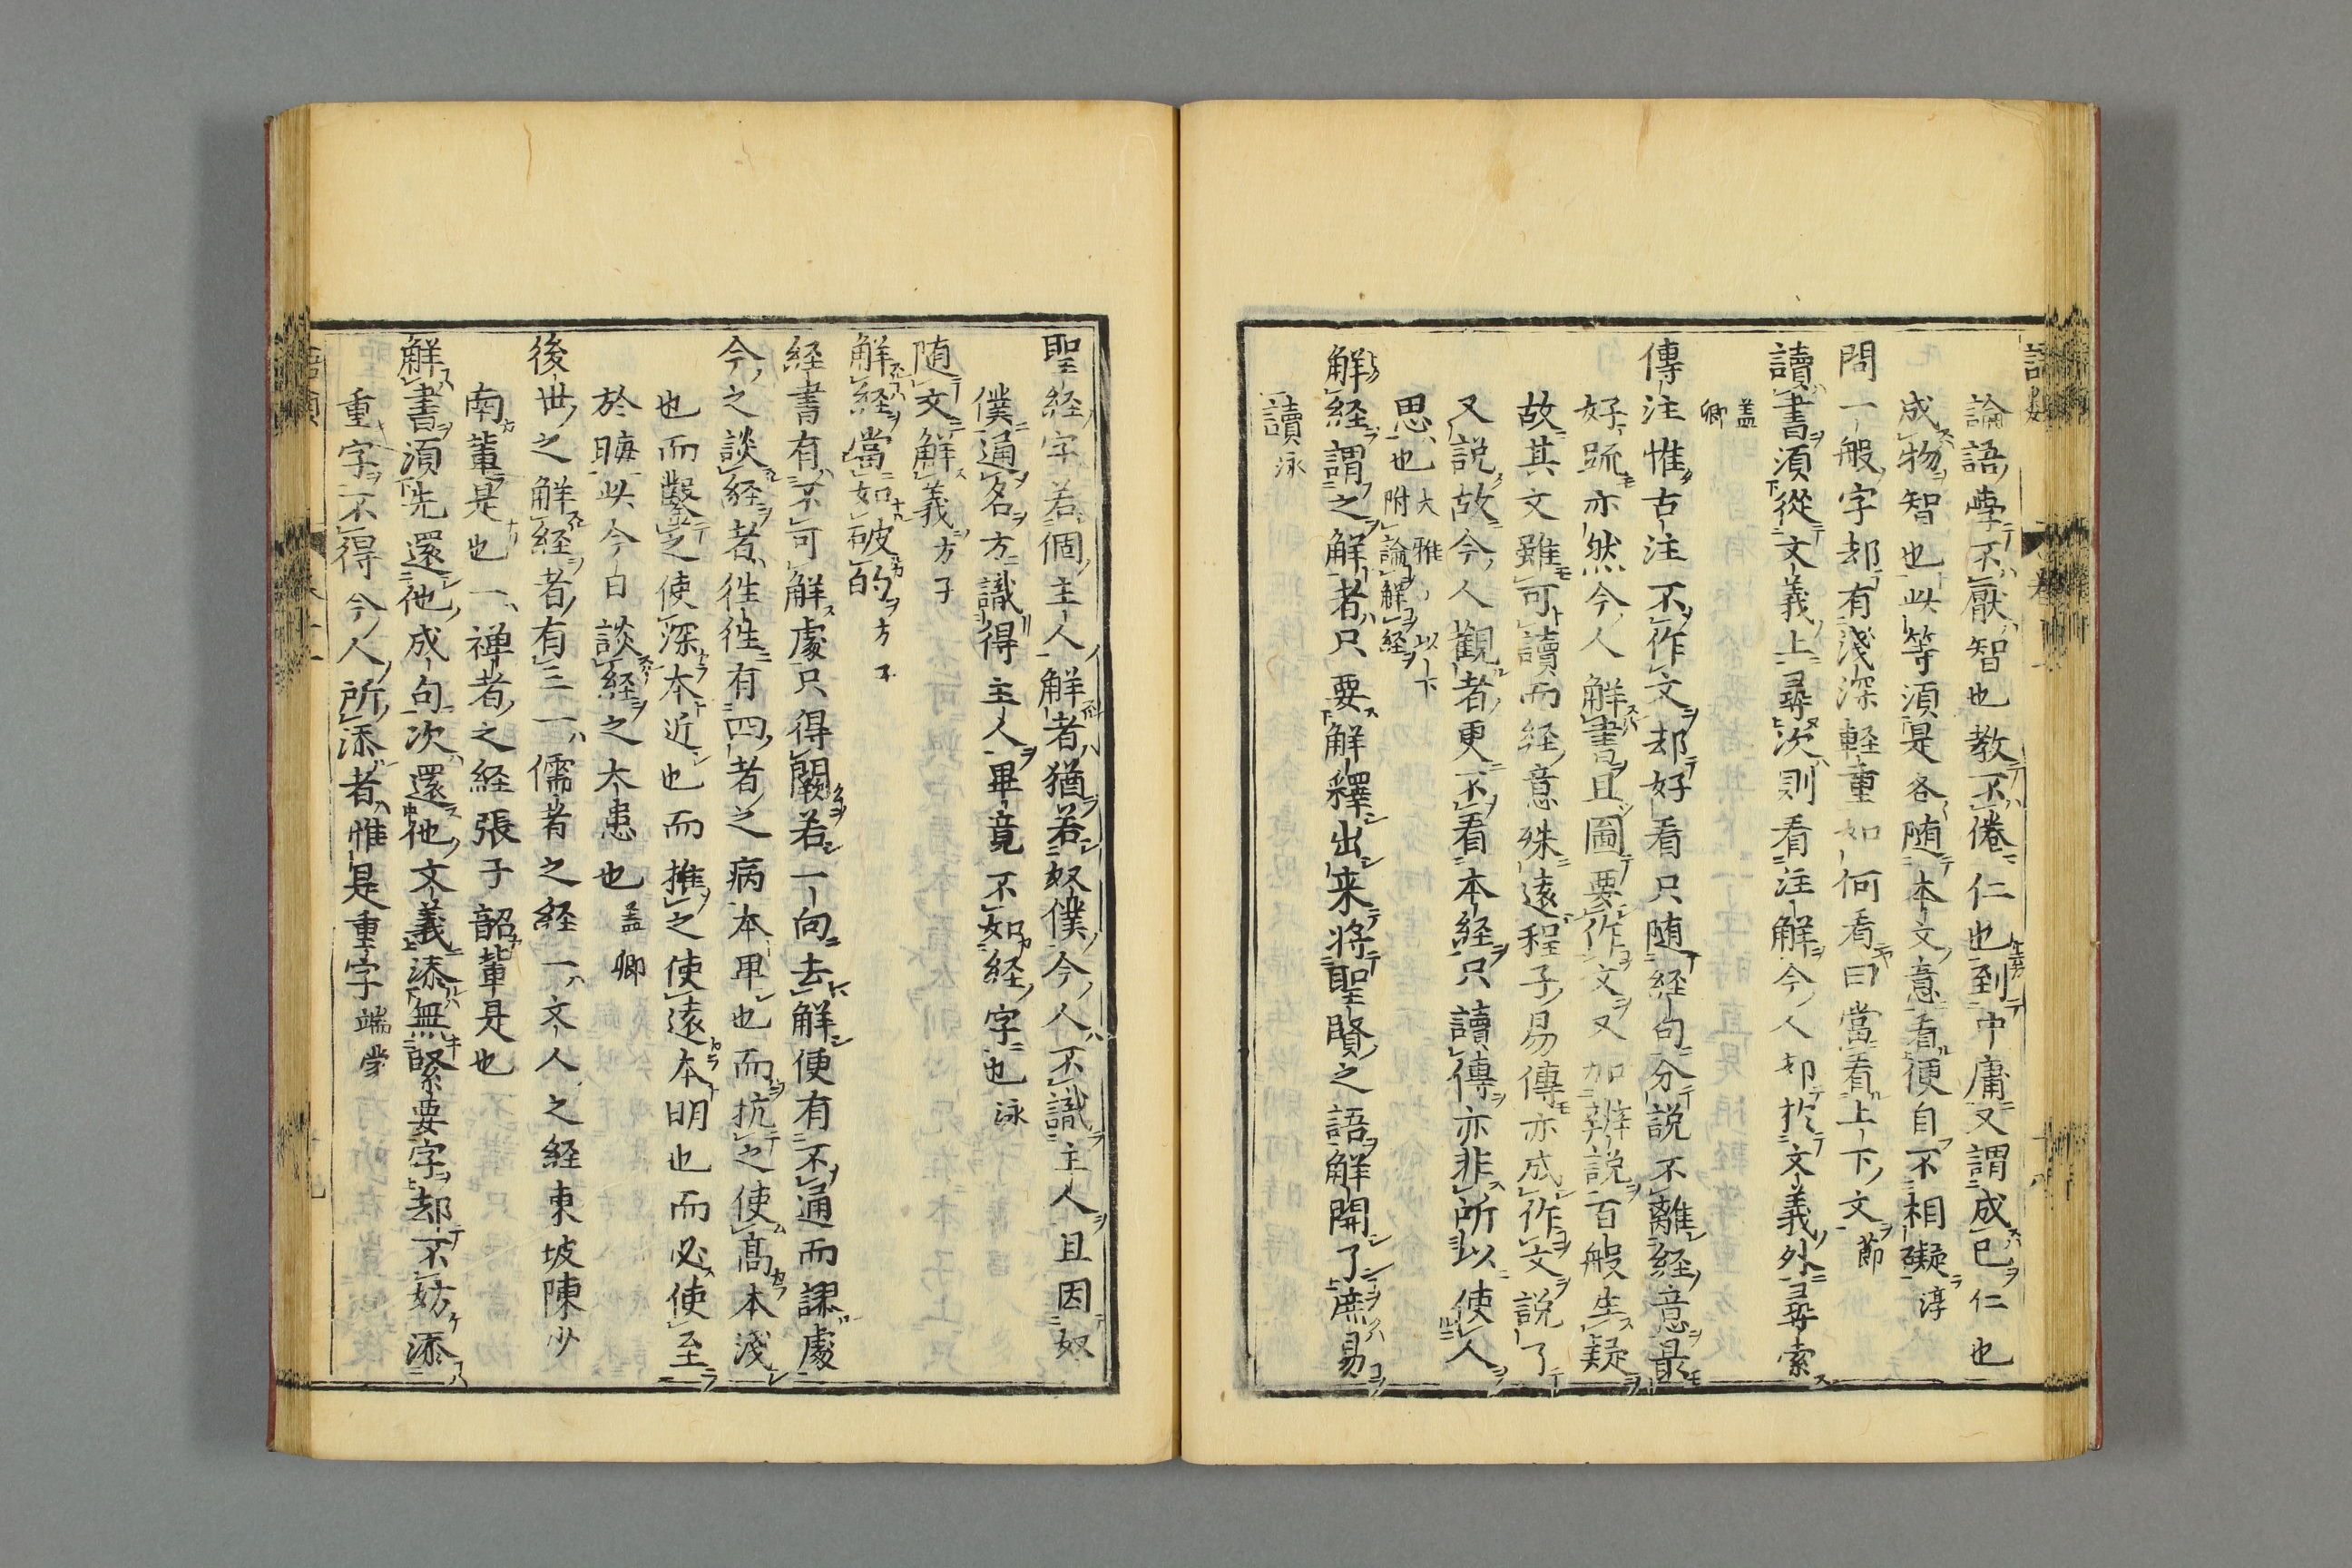 論語學不厭智也教不倦仁也到中庸又謂成已仁也
成物智也此等須是各随本文意看便自不相礙淳
問一般字却有淺深軽重如何看曰當看上下文節
讀書須從文義上尋次則看注解今人却扵文義外尋索
盖卿
傳注惟古注不作文却好看只随経句分説不離経意最
好䟽亦然今人解書且圖要作文又加辨説百般生疑
故其文雖可讀而経意殊遠程子易傳亦成作文説了
又説故今人觀者更不看本経只讀傳亦非所以使人
思也大雅以下附論解経
解経謂之解者只要解釋出来将聖賢之語解開了庶易
讀泳
聖経字若個主人解者猶若奴僕今人不識主人且因奴
僕通名方識得主人畢竟不如経字也泳
随文解義方子
解経當如破的方子
経書有不可解處只得闕若一向去解便有不通而謬處
今之談経者徃徃有四者之病本卑也而抗之使髙本淺
也而鑿之使深本近也而推之使遠本明也而必使至
於晦此今日談経之大患也盖卿
後世之解経者有三一儒者之経一文人之経東坡陳少
南輩是也一禅者之経張子韶輩是也
解書須先還他成句次還他文義添無緊要字却不妨添
重字不得今人所添者惟是重字端蒙